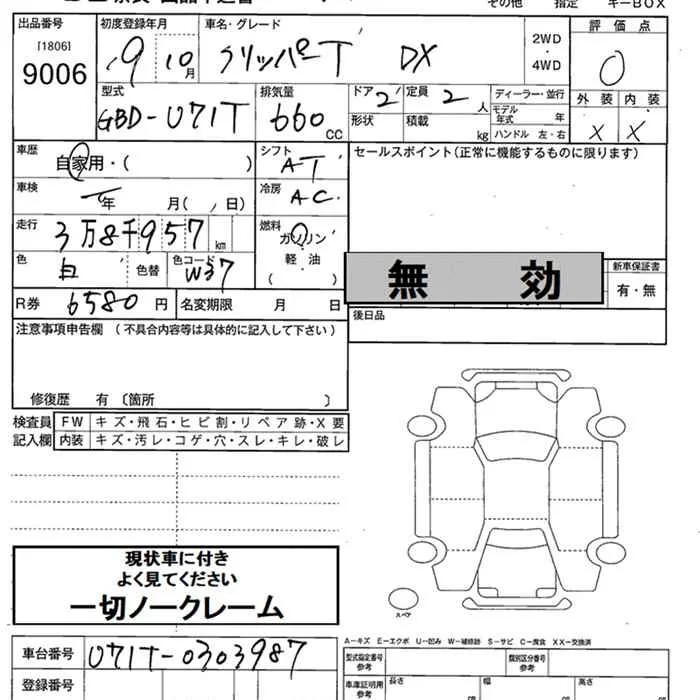 その他 指定 キーBOX
出品番号 初度登録年月 車名・グレード 評価点
[1806]
9006
19 10月 クリッパーT DX 2WD
・
4WD 0
型式 排気量 ドア 定員 ディーラー・並行 外装 内装
GBD-U71T 660 CC 2 2 人 モデル年式 年 X X
形状 積載 kg ハンドル 左・右
車歴 自家用・( ) シフト AT セールスポイント(正常に機能するものに限ります)
車検 年 月( 日) 冷房 AC
走行 3万8千957 km 燃料 ガソリン
・
軽油
( )
色 白 色替 色コード W37
無効 新車保証書
有・無
R券 6580 円 名変期限 月 日
後日品
注意事項申告欄 (不具合内容等は具体的に記入して下さい)
修復歴 有 〔箇所 〕
検査員 FW キズ・飛石・ヒビ割・リペア跡・X要
記入欄 内装 キズ・汚レ・コゲ・穴・スレ・キレ・破レ
現状車に付き
よく見てください
一切ノークレーム
スペア
A-キズ E-エクボ U-凹み W-補修跡 S-サビ C-腐食 XX-交換済
車台番号 U71T-0303987
型式指定番号 参考 類別区分番号 参考
登録番号
車庫証明用 参考 長さ 幅 高さ